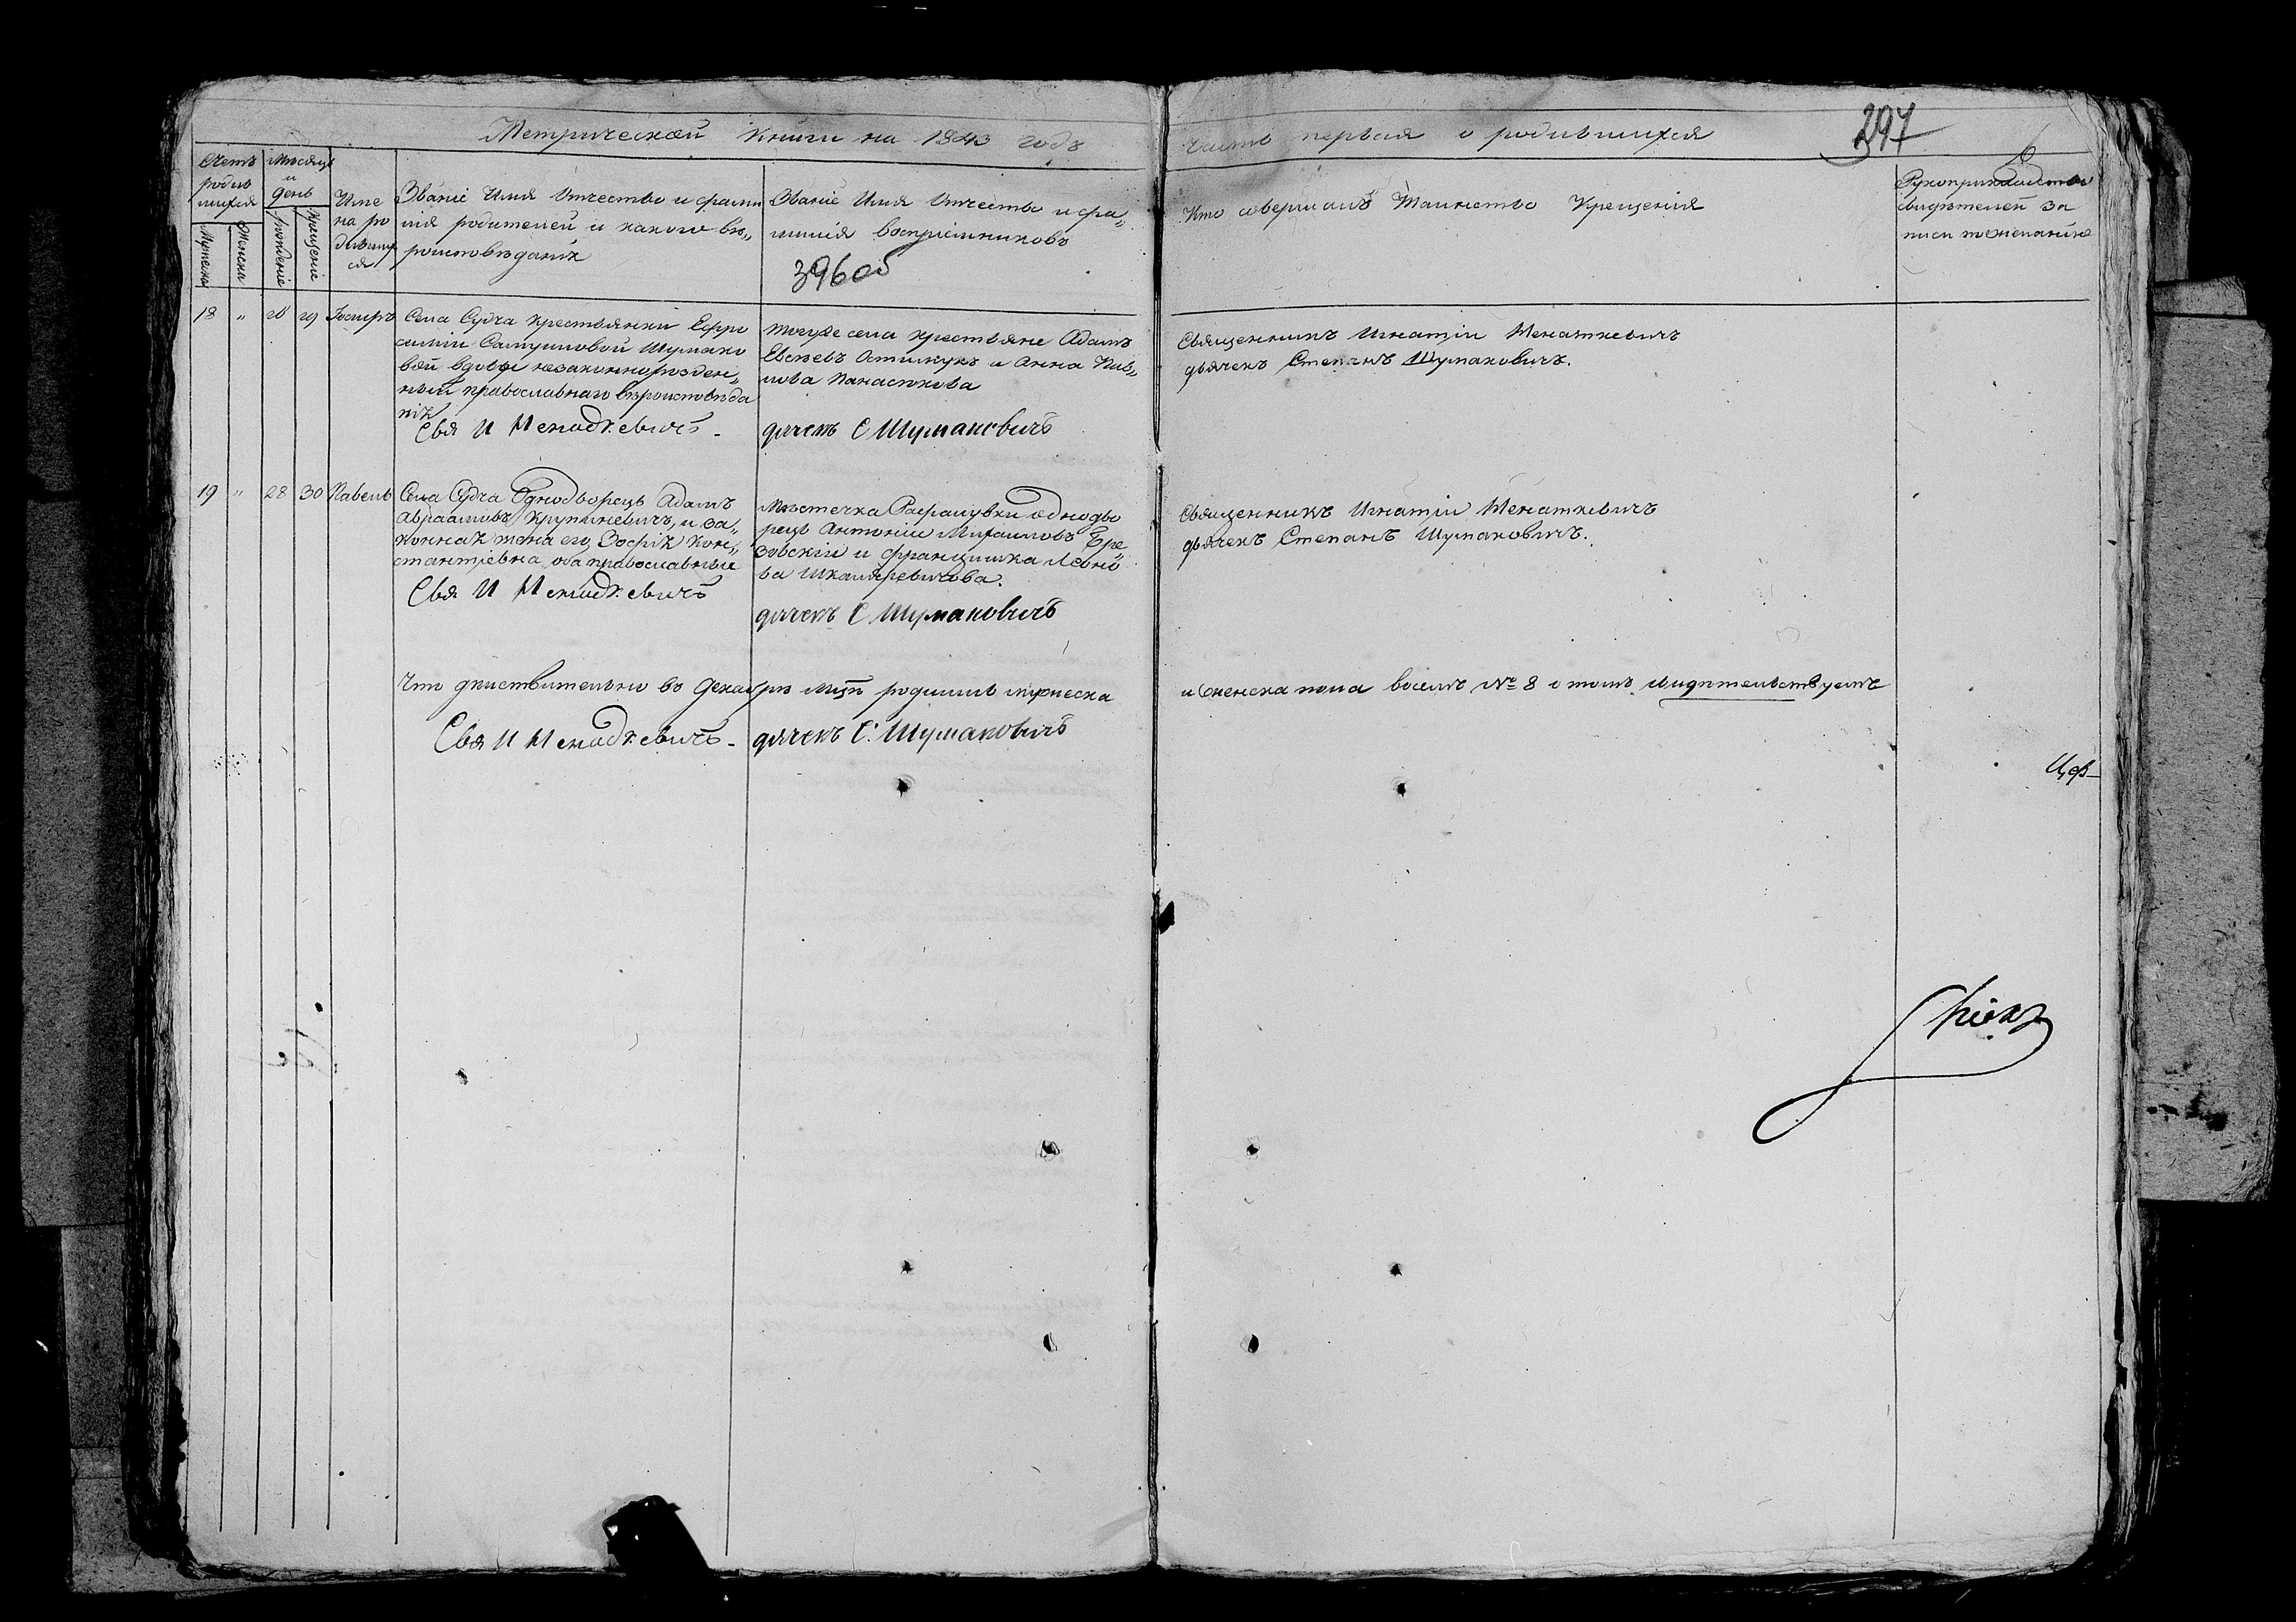 Метрической книги на 1843 годъ
часть первая о родившихся
397
6
Счетъ родив шихся
Мужеска
Женска
Месяцъ и день
рожденіе
крещеніе
Име на ро дившихся
Званіе Имя Отчество и фами
лія родителей и какого вѣ„
роисповѣданія
Званіе Имя Отчество и фа„
милія воспріемниковъ
396 об
Кто совершалъ Таинство Крещенія
Рукоприкладство
свидѣтелей за
писи по желанію
18 „ 29 Іосифъ
Села Судча крестьянки Евфро
синіи Самуиловой Шумако
вой вдовы незаконнорожден„
ный православнаго вѣроисповѣда
нія
Свя И Менадкевичъ
Тогоже села крестьяне Адамъ
Евсѣевъ и Анна
Панасюкова
дячекъ С Шумаковичъ
Священникъ Игнатіи Менаткевичъ
дьячекъ Степанъ Шумаковичъ.
19 „ 28 30 Павелъ
Села Судча Однодворецъ Адамъ
Авраамовъ Крупиневичъ и за„
конная жена его Зофія Кон„
стантіевна оба православные
Свя И Менадкевичъ
Мѣстечка Рафаловки однодво
рецъ Антоніи Михаиловъ Бре„
зовскіи и Францишка Леоно
ва
дячекъ С Шумаковичъ
Священникъ Игнатіи Менаткевичъ
дьячекъ Степанъ Шумаковичъ.
Что дѣиствительно во Декабрѣ мцѣ родились мужеска
и женска пола восемъ № 8 о томъ свидѣтельствуемъ
Свя И Менадкевичъ
дячекъ С. Шумаковичъ
Цер